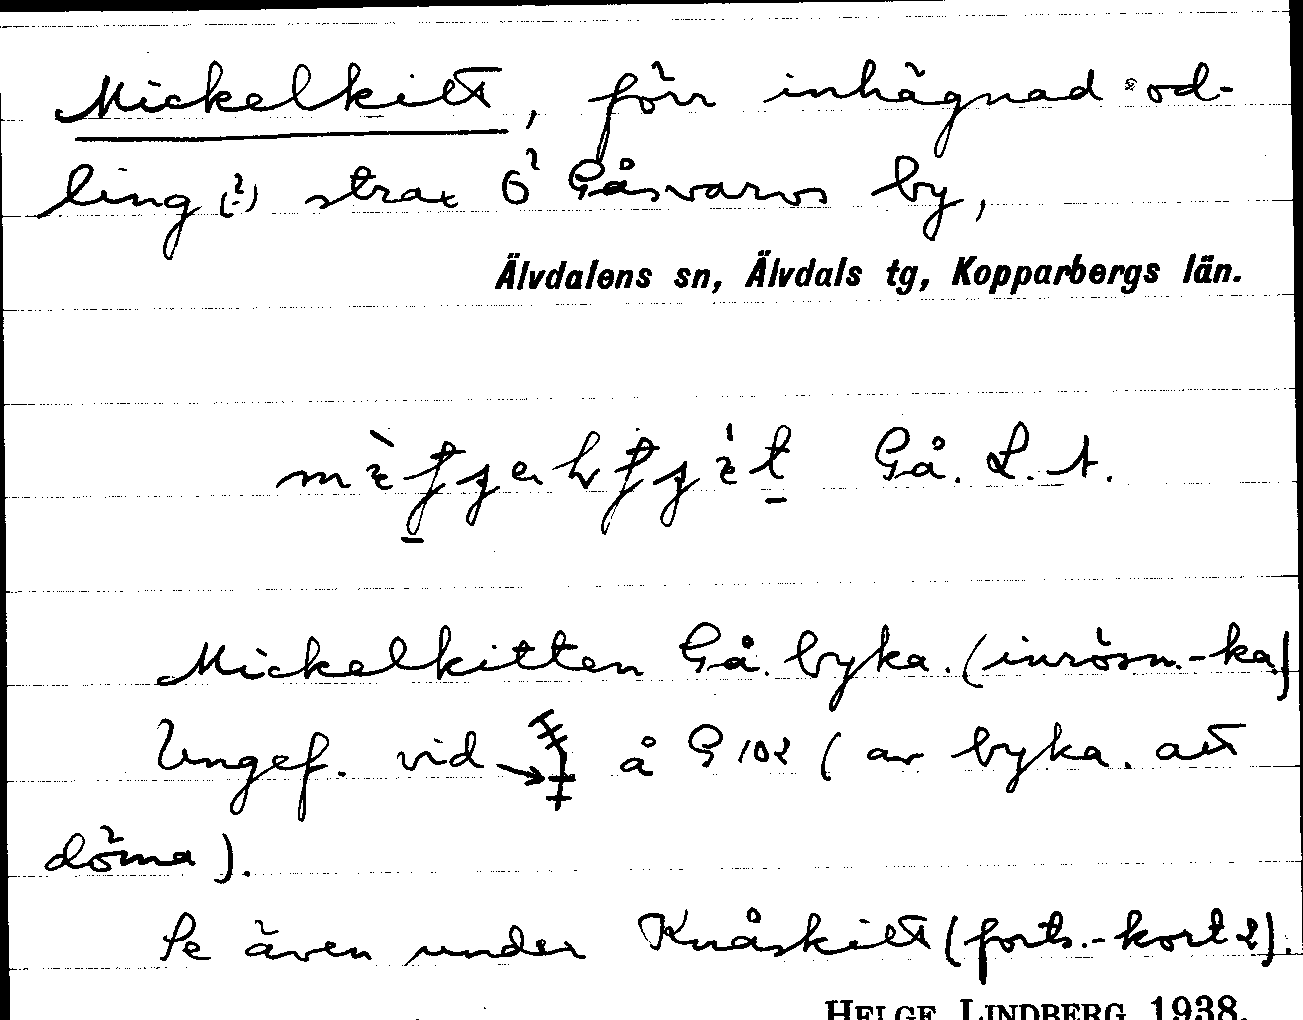 Mickelkitt, förr inhägnad od-
ling (?) strax Ö Gåsvarvs by,
Älvdalens sn, Älvdals tg, Kopparbergs län.
Gå. L. A.
Mickelkitten Gå. byka. (inrösn.-ka.)
Ungef. vid → å G 102 (av byka. att
döma).
Se även under Knåskitt (forts.-kort 2).
HELGE LINDBERG 1938.